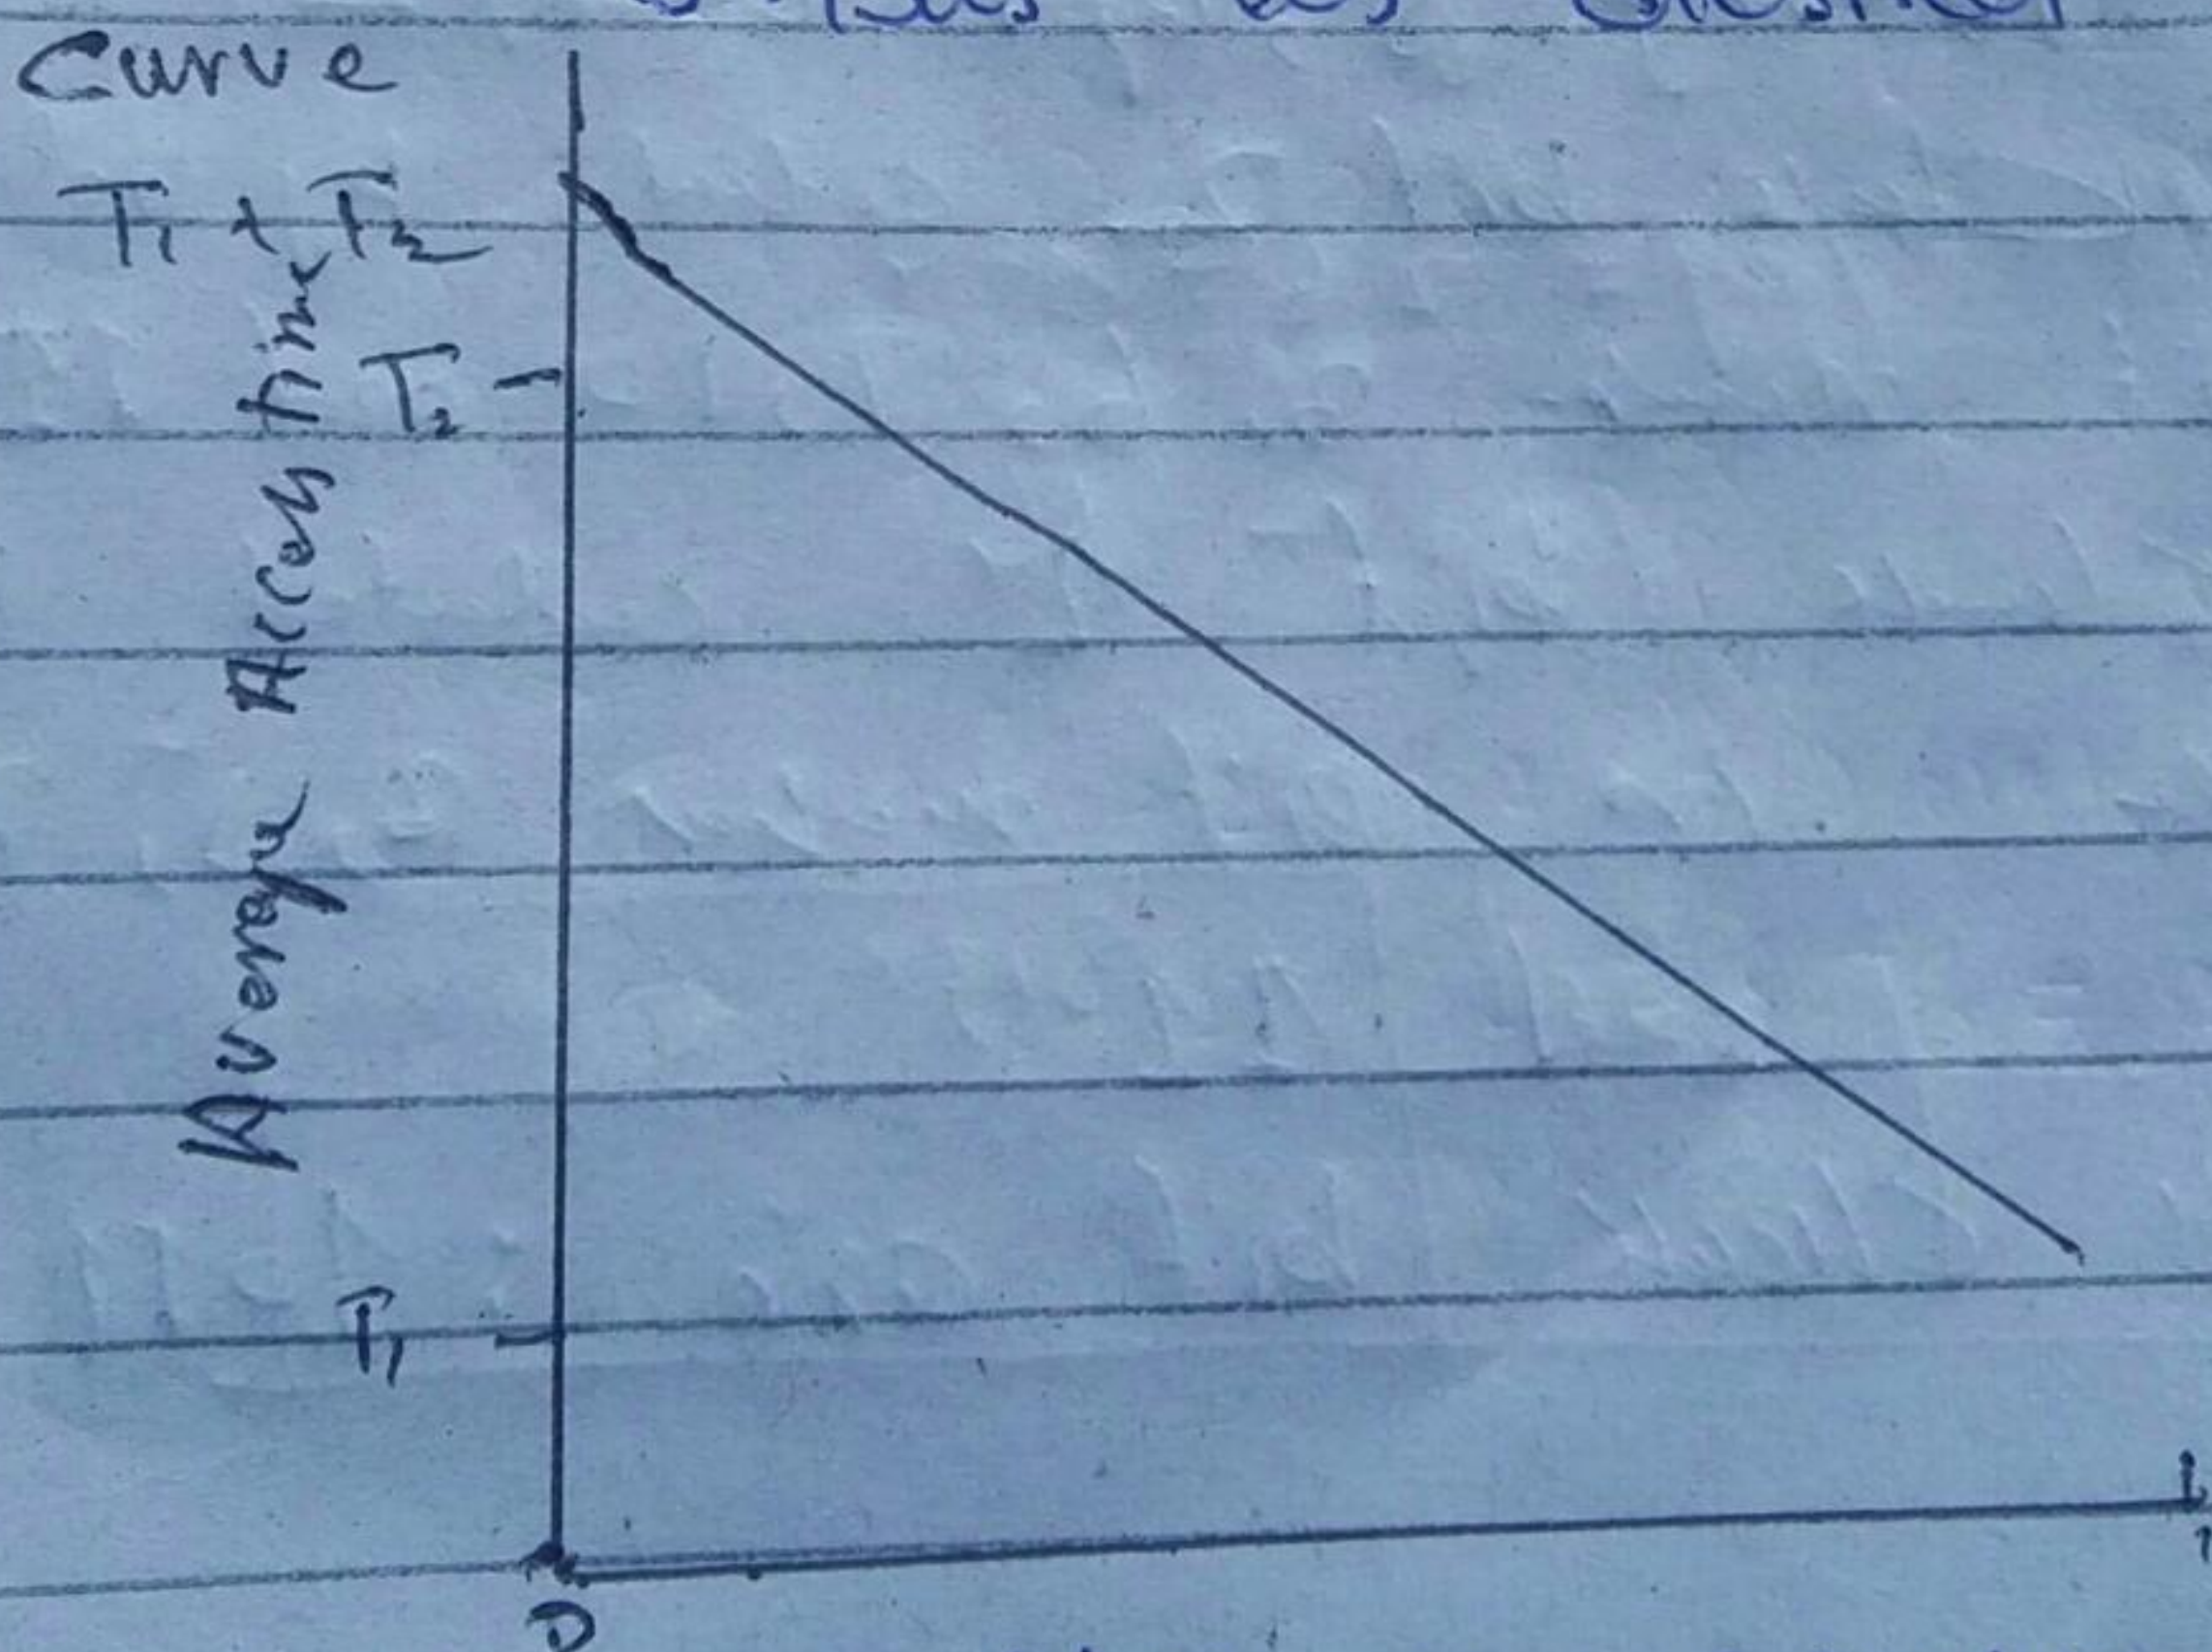 Curve
T1 + T2
T2
Average Access time
T1
0
1